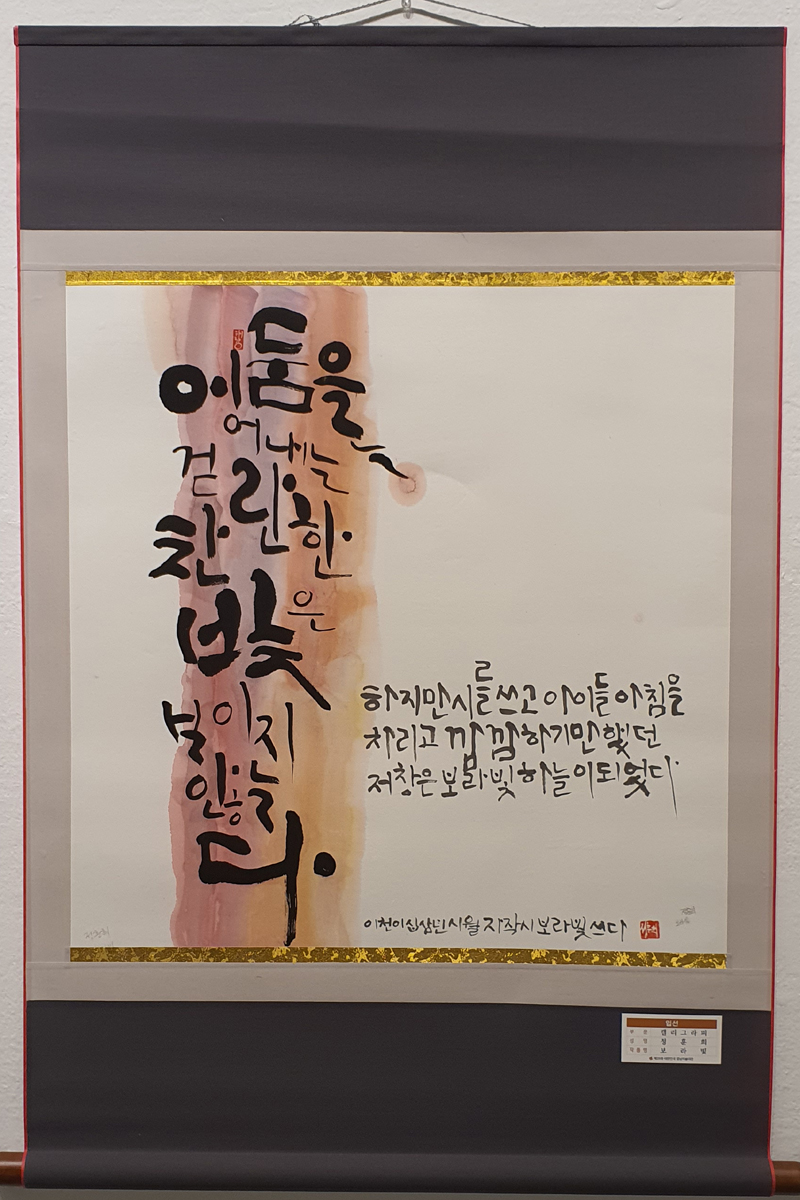 어둠을
걷어내는
찬란한
빛은
보이지
않는
다.
하지만 시를 쓰고 아이들 아침을
차리고 깜깜하기만 했던
저 창은 보라빛 하늘이 되었다
이천이십삼년 시월 자작시 보라빛 쓰다
입선
부 문 캘리그라피
성 명
작품명 보 라 빛